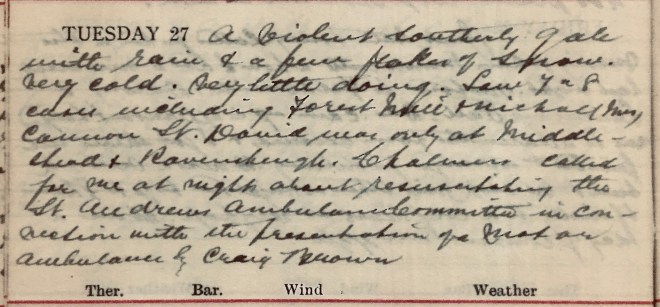 TUESDAY 27 A violent southerly gale
with rain & a few flakes of snow.
Very cold. Very little doing. Saw 7 or 8
cases including Forest Mill & Nicholl (Mrs)
Cannon St. David was only at Middle-
shead & Ravensheugh. Chalmers called
for me at night about resuscitating the
St. Andrews Ambulance Committee in con-
nection with the presentation of a motor
ambulance by Craig Brown
Ther. Bar. Wind Weather